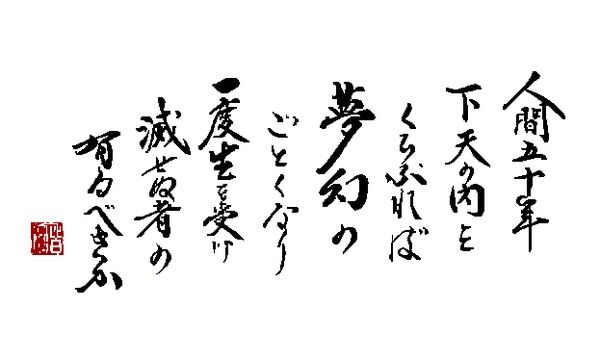 人間五十年
下天の内を
くらぶれば
夢幻の
ごとくなり
一度生を受け
滅せぬ者の
有るべきか